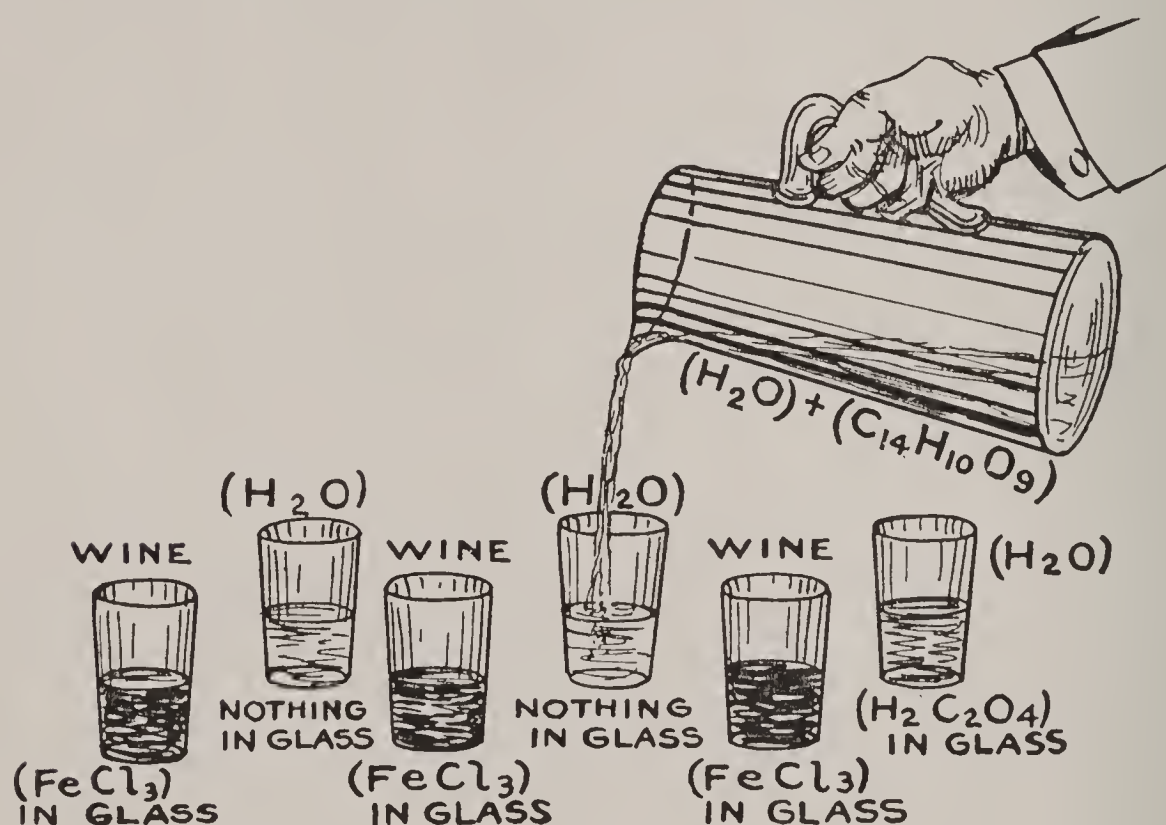 (H₂O) + (C₁₄H₁₀O₉)
(H₂O)
(H₂O)
WINE
WINE
WINE
(H₂O)
NOTHING
IN GLASS
NOTHING
IN GLASS
(H₂C₂O₄)
IN GLASS
(FeCl₃)
IN GLASS
(FeCl₃)
IN GLASS
(FeCl₃)
IN GLASS